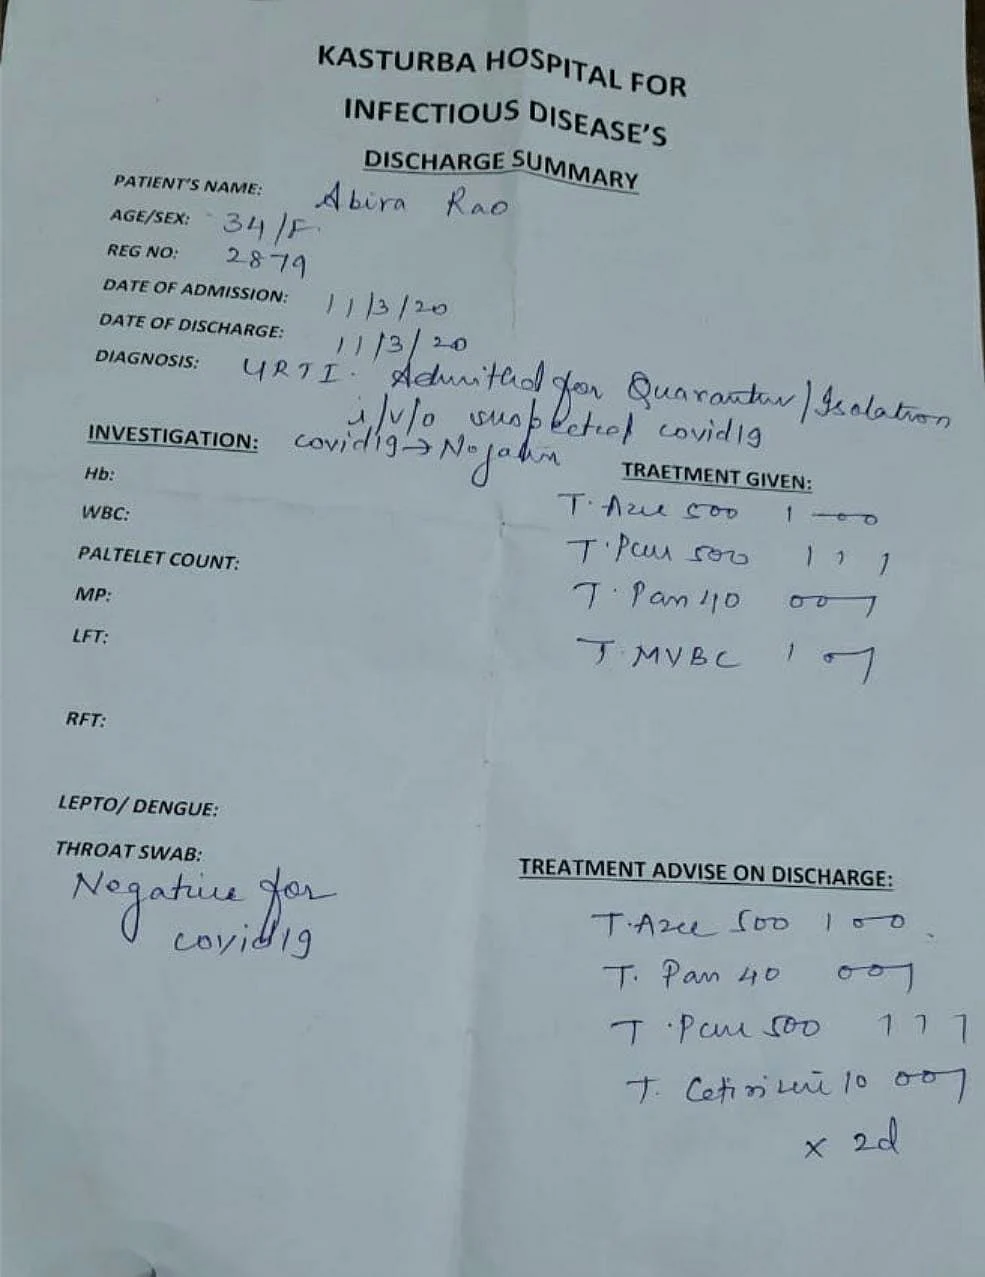 KASTURBA HOSPITAL FOR
INFECTIOUS DISEASE'S
DISCHARGE SUMMARY
PATIENT'S NAME: Abira Rao
AGE/SEX: 34/F.
REG NO: 2879
DATE OF ADMISSION: 11/3/20
DATE OF DISCHARGE: 11/3/20
DIAGNOSIS: URTI. Admitted for Quarantine/Isolation
i/v/o suspected covid19
INVESTIGATION: covid19→Negative
TRAETMENT GIVEN:
Hb:
T. Azee 500 1-00
WBC:
T. Pcm 500 1 1 1
PALTELET COUNT:
T. Pan 40 001
MP:
T. MVBC 1 01
LFT:
RFT:
LEPTO/ DENGUE:
THROAT SWAB:
Negative for
covid19
TREATMENT ADVISE ON DISCHARGE:
T. Azee 500 100
T. Pan 40 001
T. Pcm 500 1 1 1
T. 10 001
x 2d